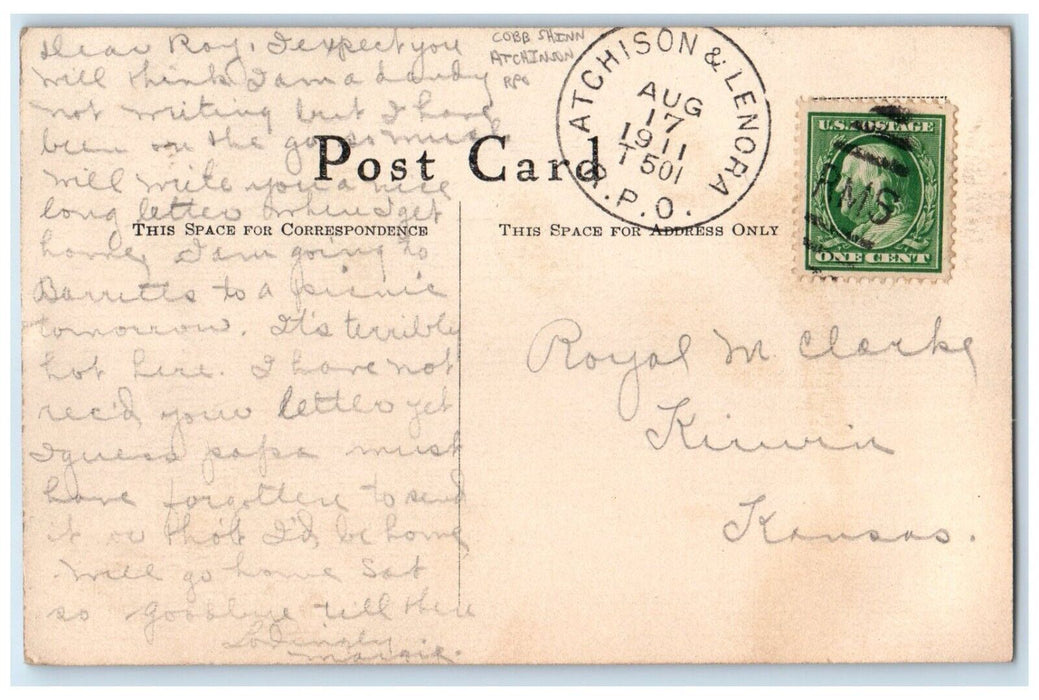 Dear Roy, I expect you
will think I am a dandy
not writing but I have
been on the go so much
will write you a nice
long letter when I get
home, I am going to
Barretts to a picnic
tomorrow. It's terribly
hot here. I have not
rec'd your letter yet
I guess papa must
have forgotten to send
it or tho't I'd be home
will go home Sat
so goodbye till then
Lovingly
COBB SHINN
ATCHINSON
RPO
Post Card
THIS SPACE FOR CORRESPONDENCE
THIS SPACE FOR ADDRESS ONLY
ATCHISON & LENORA
AUG
17
1911
T 501
R.P.O.
U.S. POSTAGE
RMS
ONE CENT
Royal M Clarke
Kirwin
Kansas.